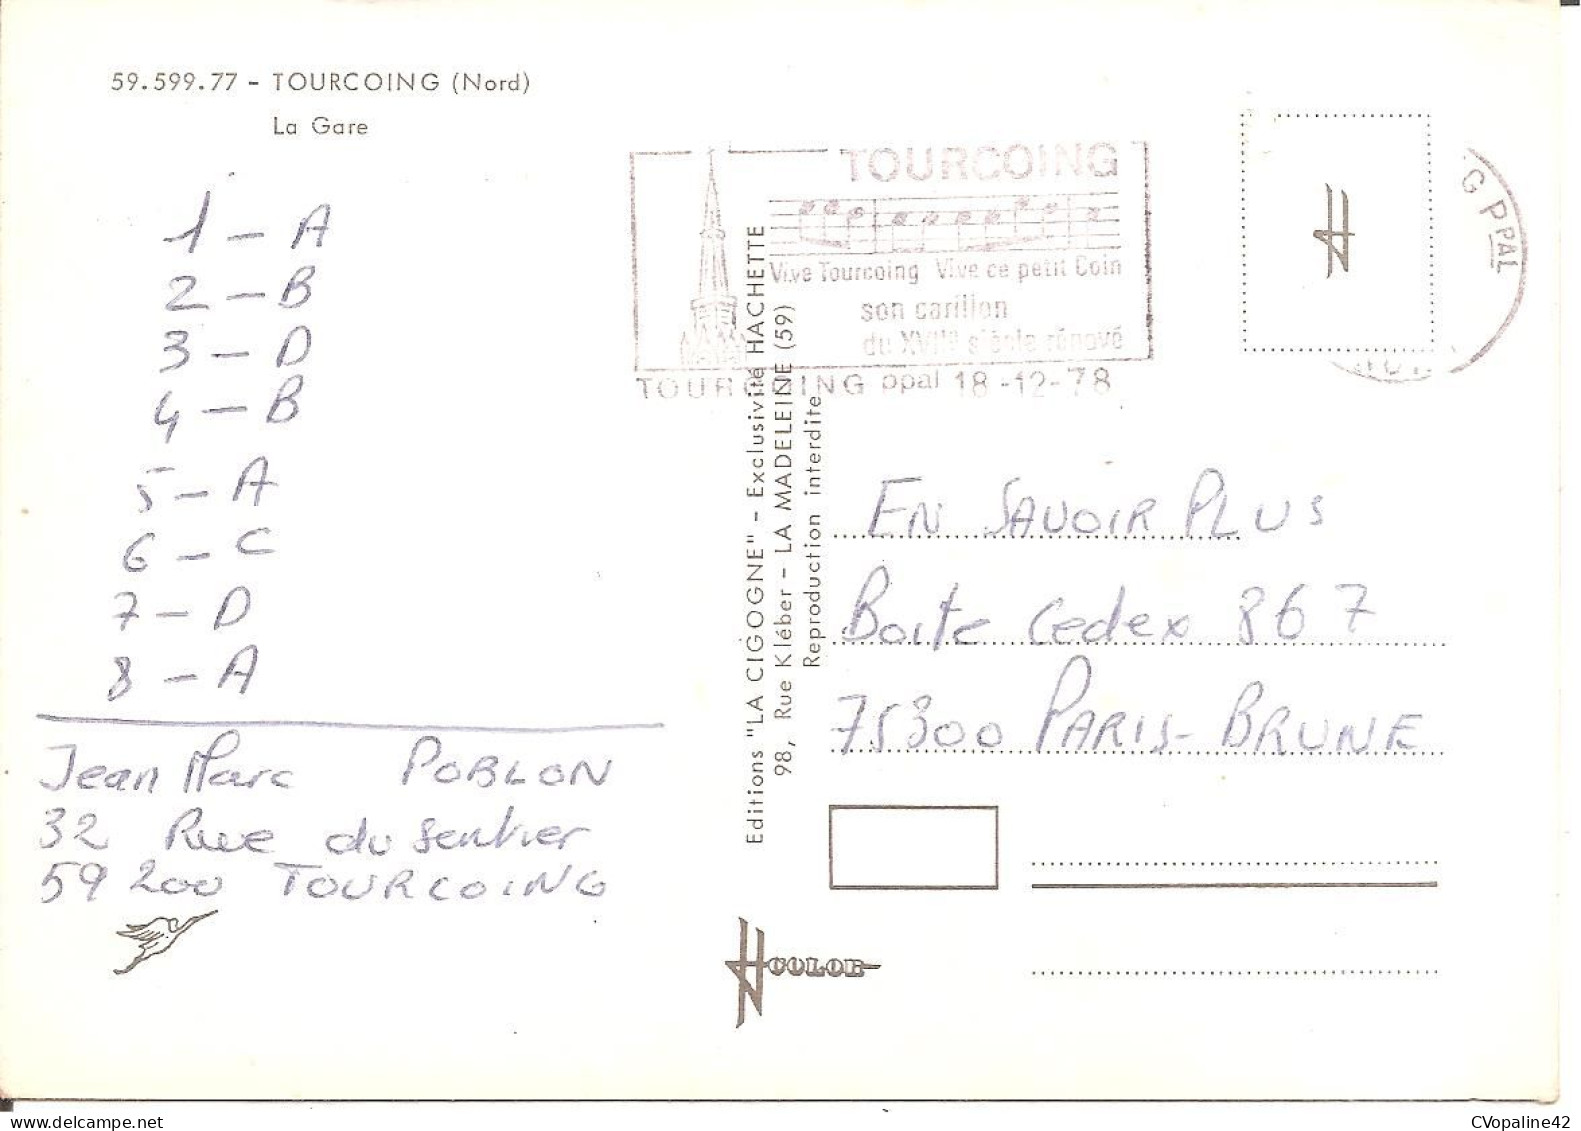 59.599.77 - TOURCOING (Nord)
La Gare
1 - A
2 - B
3 - D
4 - B
5 - A
6 - C
7 - D
8 - A
Jean Marc POBLON
32 Rue du Sentier
59 200 TOURCOING
TOURCOING
Vive Tourcoing Vive ce petit Coin
son carillon
du XVIIIe siècle rénové
TOURCOING ppal 18-12-78
G PPAL
Editions "LA CIGOGNE" - Exclusivité HACHETTE
98, Rue Kléber - LA MADELEINE (59)
Reproduction interdite
EN SAVOIR PLUS
Boite Cedex 867
75300 PARIS-BRUNE
COLOR
CVopaline42